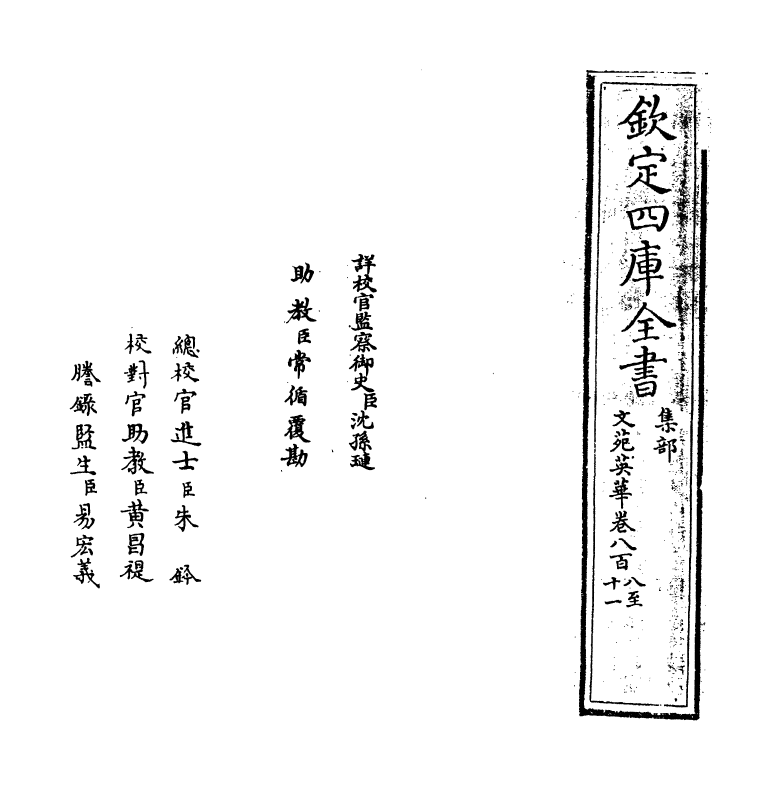 欽定四庫全書
集部
文苑英華卷八百八至十一
詳校官監察御史臣沈孫璉
助教臣常循覆勘
總校官進士臣朱鈐
校對官助教臣黄昌禔
謄錄監生臣易宏義